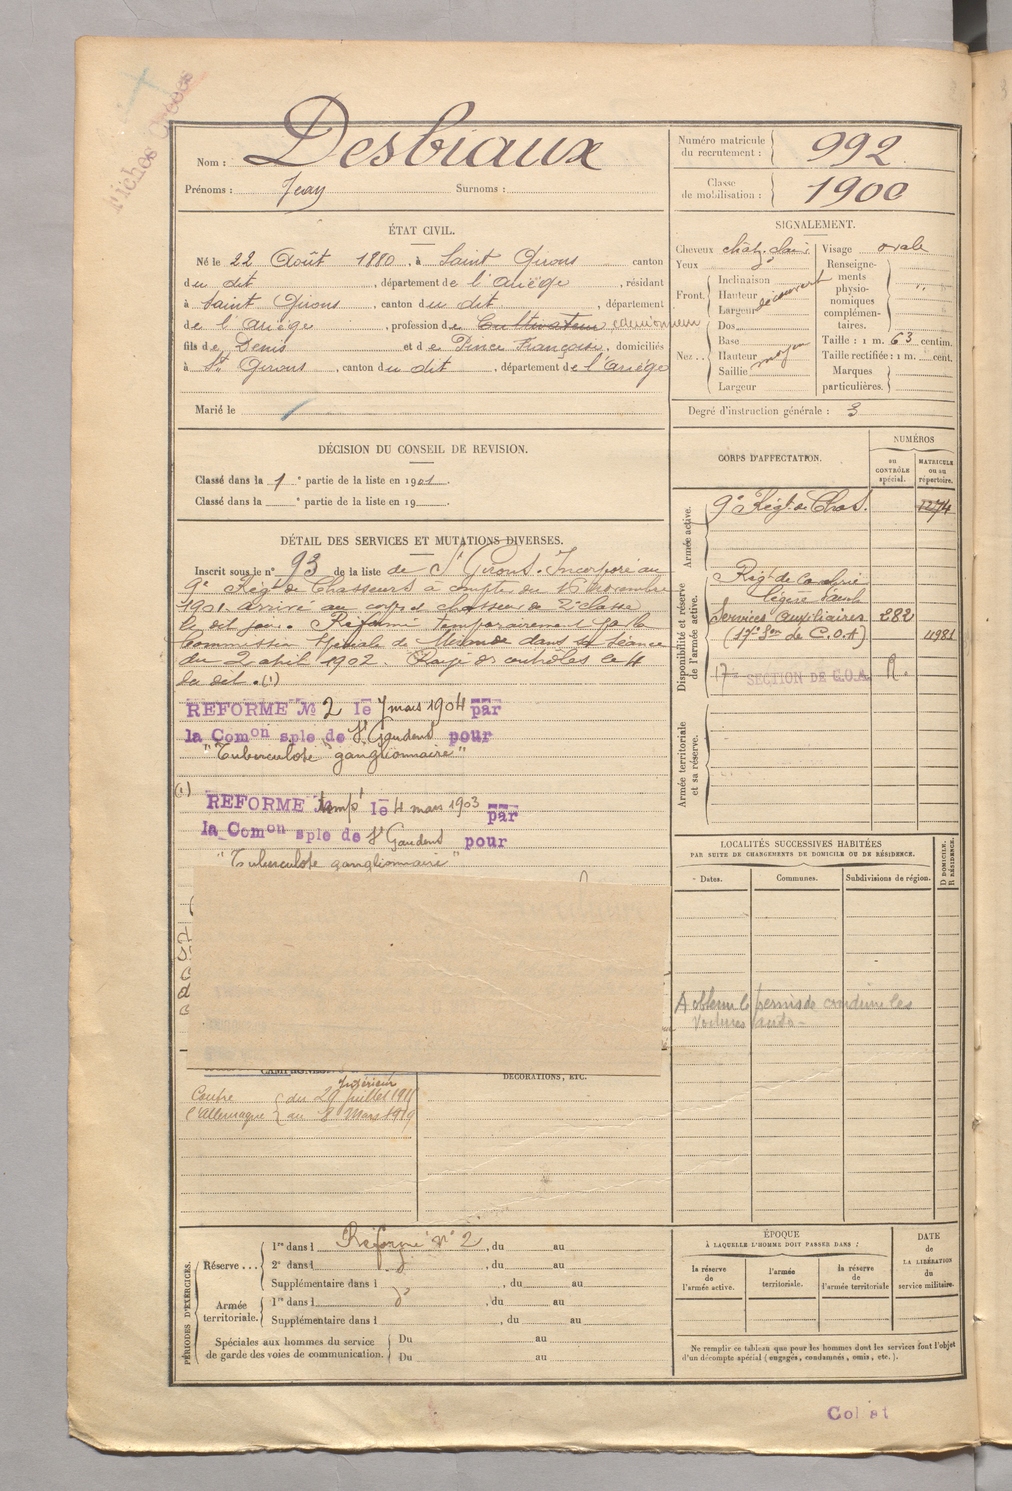 Fiches
Nom : Desbiaux
Prénoms : Jean Surnoms :
Numéro matricule du recrutement : 992
Classe de mobilisation : 1900
ÉTAT CIVIL.
Né le 22 Août 1880, à Saint Girons canton
du dit, département de l'Ariège, résidant
à Saint Girons, canton du dit, département
de l'Ariège, profession de Cultivateur camionneur
fils de Denis et de Pince Françoise, domiciliés
à St Girons, canton du dit, département de l'Ariège
Marié le
SIGNALEMENT.
Cheveux chât. clair
Yeux d°
Front
Inclinaison
Hauteur
Largeur
découvert
Nez
Dos
Base
Hauteur
Saillie
Largeur
moyen
Visage ovale
Renseigne-
ments
physio-
nomiques
complémen-
taires.
Taille : 1 m. 63 centim.
Taille rectifiée : 1 m. cent.
Marques
particulières.
Degré d'instruction générale : 3
DÉCISION DU CONSEIL DE REVISION.
Classé dans la 1 e partie de la liste en 1901.
Classé dans la e partie de la liste en 19
DÉTAIL DES SERVICES ET MUTATIONS DIVERSES.
Inscrit sous le n° 93 de la liste de St Girons. Incorporé au
9e Régt de Chasseurs à compter du 16 Novembre
1901. Arrivé au corps et chasseur de 2e classe
le dit jour. Réformé temporairement par la
Commission Spéciale de Mirande dans sa séance
du 2 avril 1902. Rayé des contrôles le 4
du dit. (1)
REFORME № 2 le 7 mars 1904 par
la Comon sple de St Gaudens pour
"Tuberculose ganglionnaire"
(1)
REFORME tempe le 4 mars 1903 par
la Comon sple de St Gaudens pour
"Tuberculose ganglionnaire"
CAMPAGNES.
Intérieur
Contre du 29 juillet 191
l'Allemagne au 8 Mars 1919
DÉCORATIONS, ETC.
CORPS D'AFFECTATION.
NUMÉROS
au CONTRÔLE spécial.
MATRICULE ou au répertoire.
Armée active.
9e Régt de Chas. 1274
Disponibilité et réserve de l'armée active.
Régt de Cavalerie
légère
Services Auxiliaires 282
(17e Son de C.O.A) 4981
17e SECTION DE C.O.A. R.
Armée territoriale et sa réserve.
LOCALITÉS SUCCESSIVES HABITÉES
PAR SUITE DE CHANGEMENTS DE DOMICILE OU DE RÉSIDENCE.
Dates. Communes. Subdivisions de région. D DOMICILE. R RÉSIDENCE.
A obtenu le permis de conduire les
voitures auto-
PÉRIODES D'EXERCICES.
Réserve...
1re dans l Réformé n° 2, du au
2e dans l d°, du au
Supplémentaire dans l, du au
Armée territoriale.
1re dans l d°, du au
Supplémentaire dans l, du au
Spéciales aux hommes du service
de garde des voies de communication.
Du au
Du au
ÉPOQUE
À LAQUELLE L'HOMME DOIT PASSER DANS :
la réserve de l'armée active.
l'armée territoriale.
la réserve de l'armée territoriale
DATE de LA LIBÉRATION du service militaire.
Ne remplir ce tableau que pour les hommes dont les services font l'objet
d'un décompte spécial (engagés, condamnés, omis, etc.).